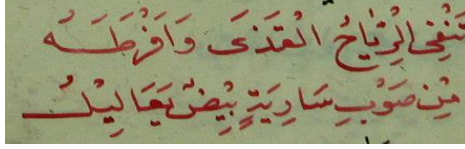 تَنْفِى الرِّيَاحُ الْقَذَى وَاَفْرَطَـــهُ
مِنْ صَوْبِ سَارِيَةٍ بِيْضٌ يَعَالِيْلُ